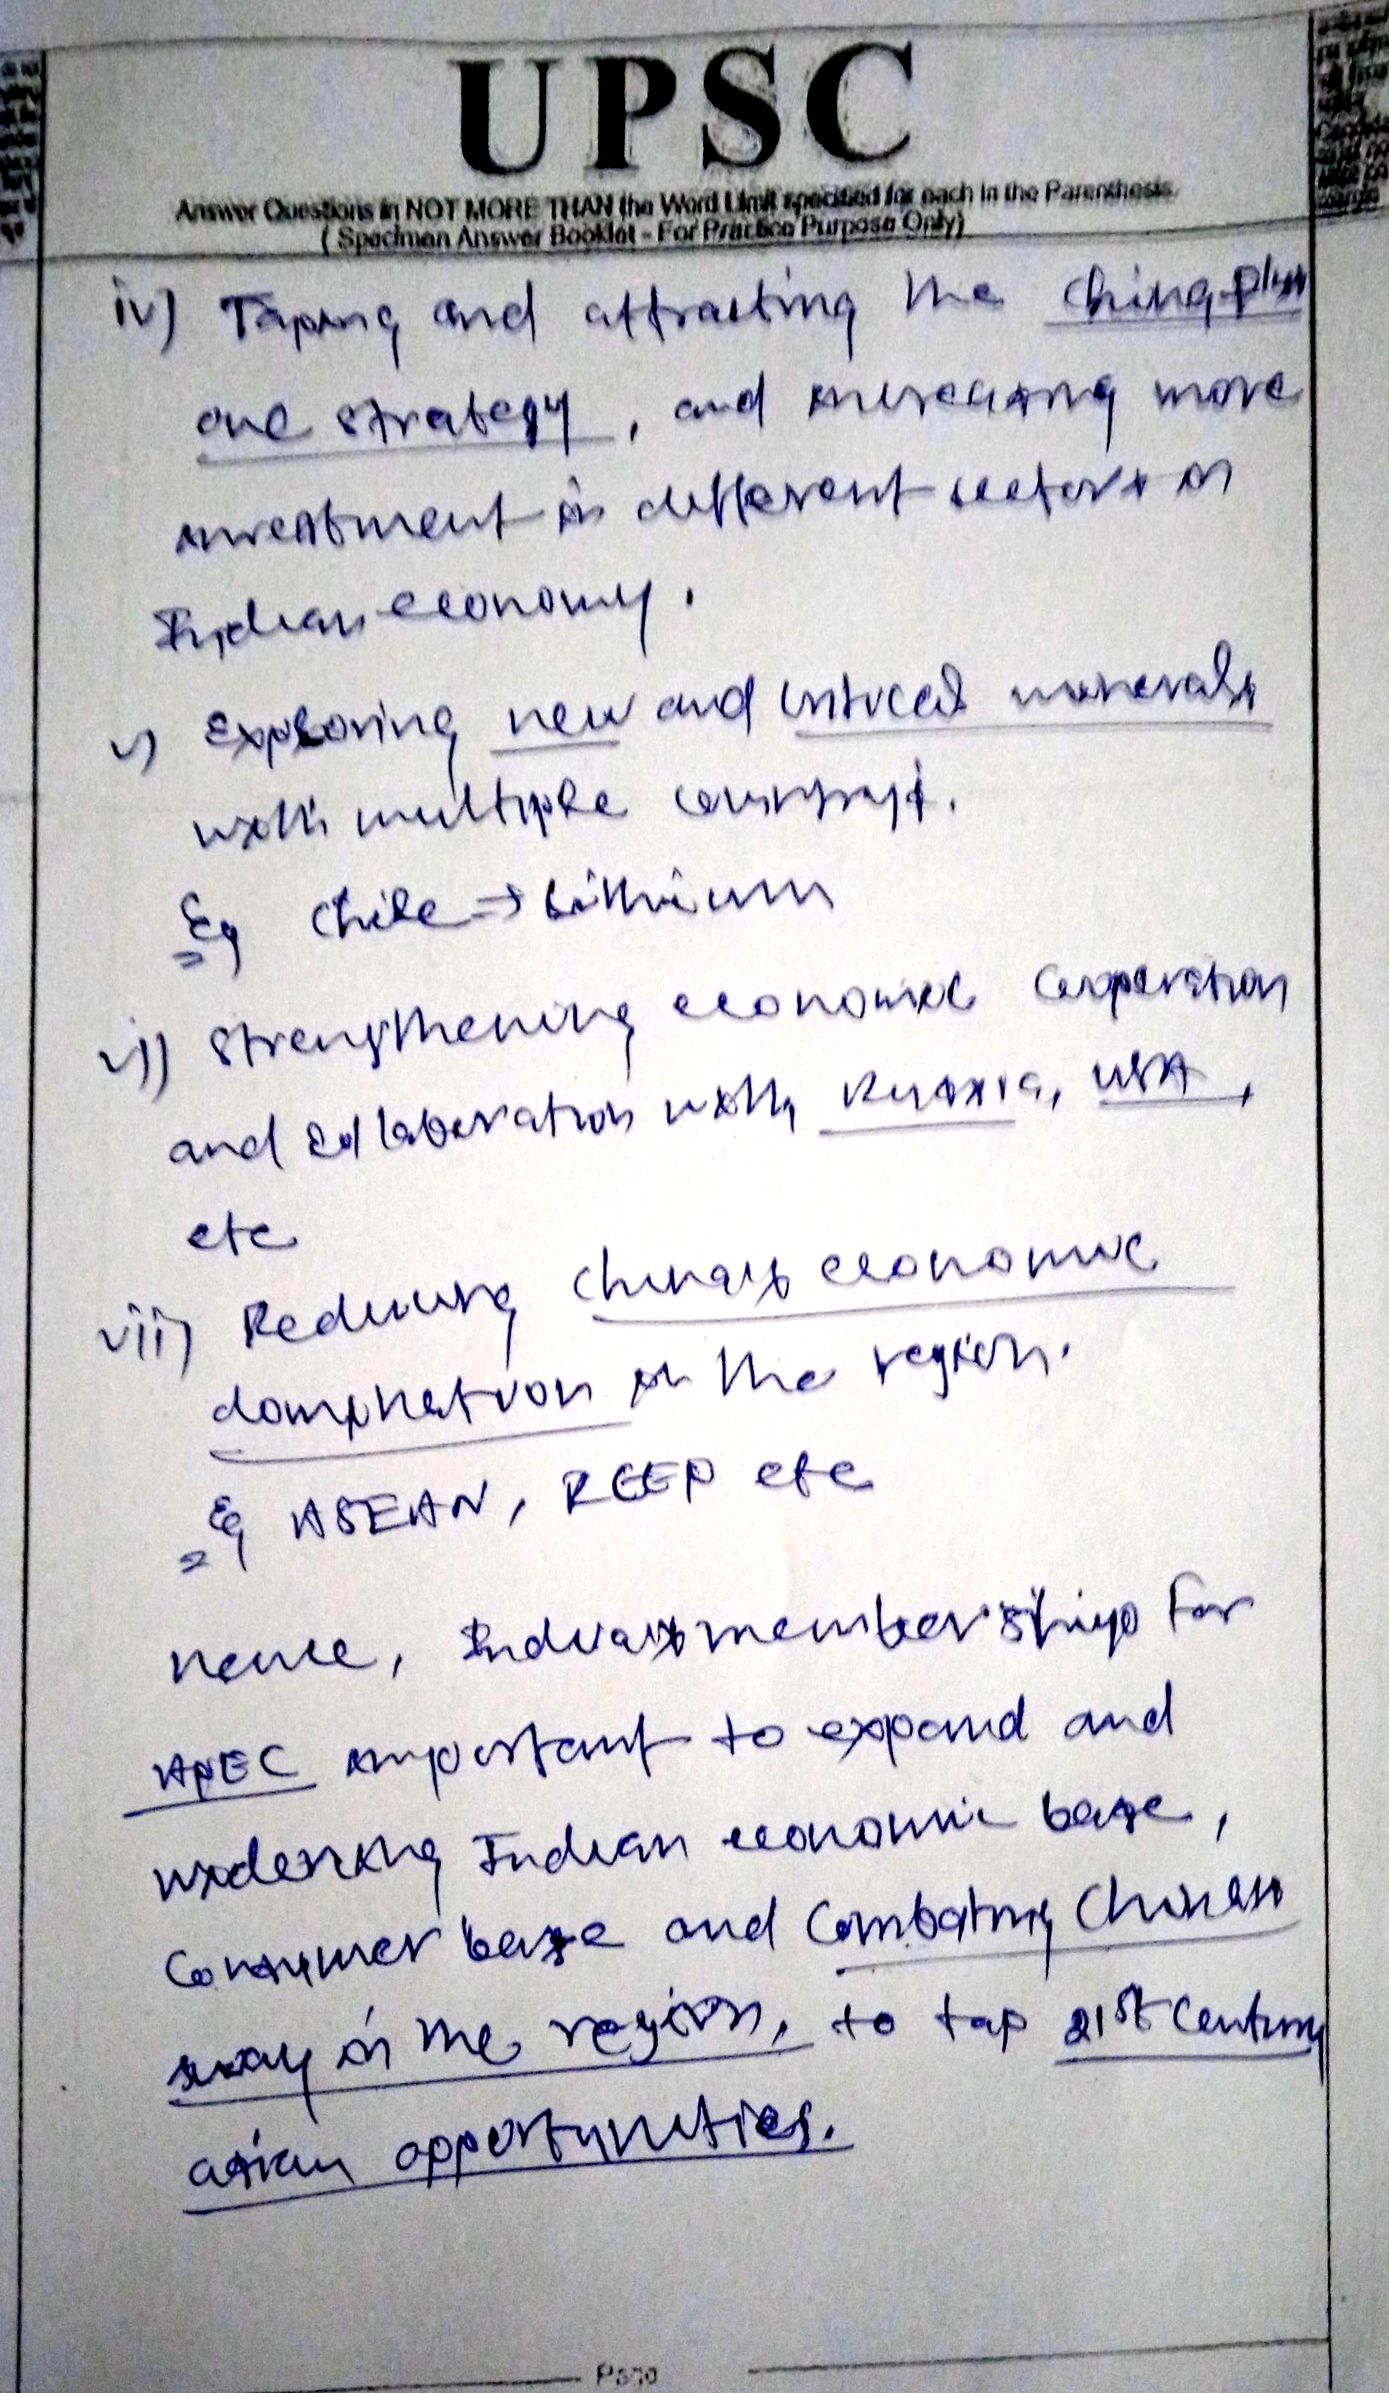 UPSC
Answer Questions in NOT MORE THAN the Word Limit specified for each in the Parenthesis.
( Specimen Answer Booklet - For Practice Purpose Only)
iv) Taping and attracting the China-plus
one strategy, and increasing more
investment in different sectors in
Indian economy.
v) Exploring new and critical minerals
with multiple
Eg Chile ⇒ Lithium
vi) Strengthening economic cooperation
and collaboration with Russia, USA,
etc
vii) Reducing China's economic
domination in the region.
Eg ASEAN, RCEP etc
Hence, India's membership for
APEC important to expand and
widening Indian economic base,
Consumer base and Combating Chinese
sway in the region, to tap 21st Century
asian opportunities.
Page